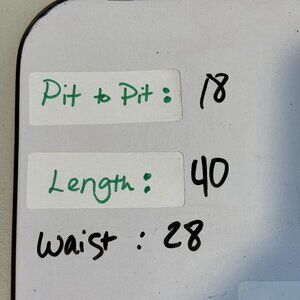 Pit to Pit: 18
Length: 40
Waist: 28